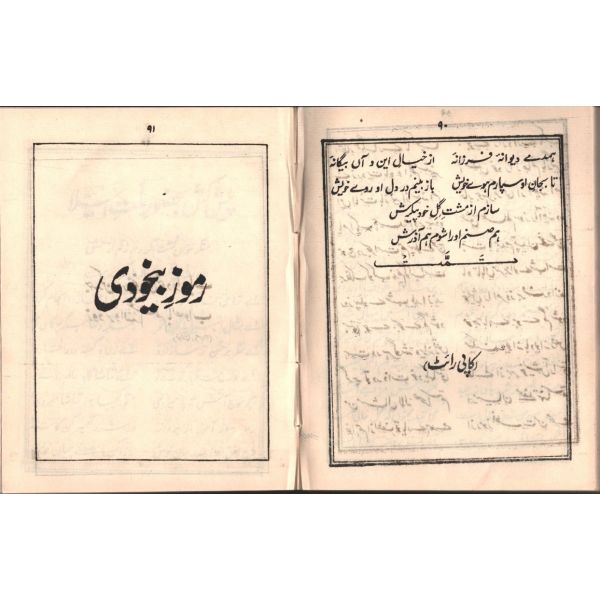 ۹۰
ہمدمے دیوانۂ فرزانۂ از خیال این و آں بیگانۂ
تا بجان او سپارم ہوے خویش باز بینم در دل او روے خویش
سازم از مشت گل خود پیکرش
ہم صنم او را شوم ہم آذرش
تمت
(کاپی رائٹ)
۹۱
رموز بیخودی